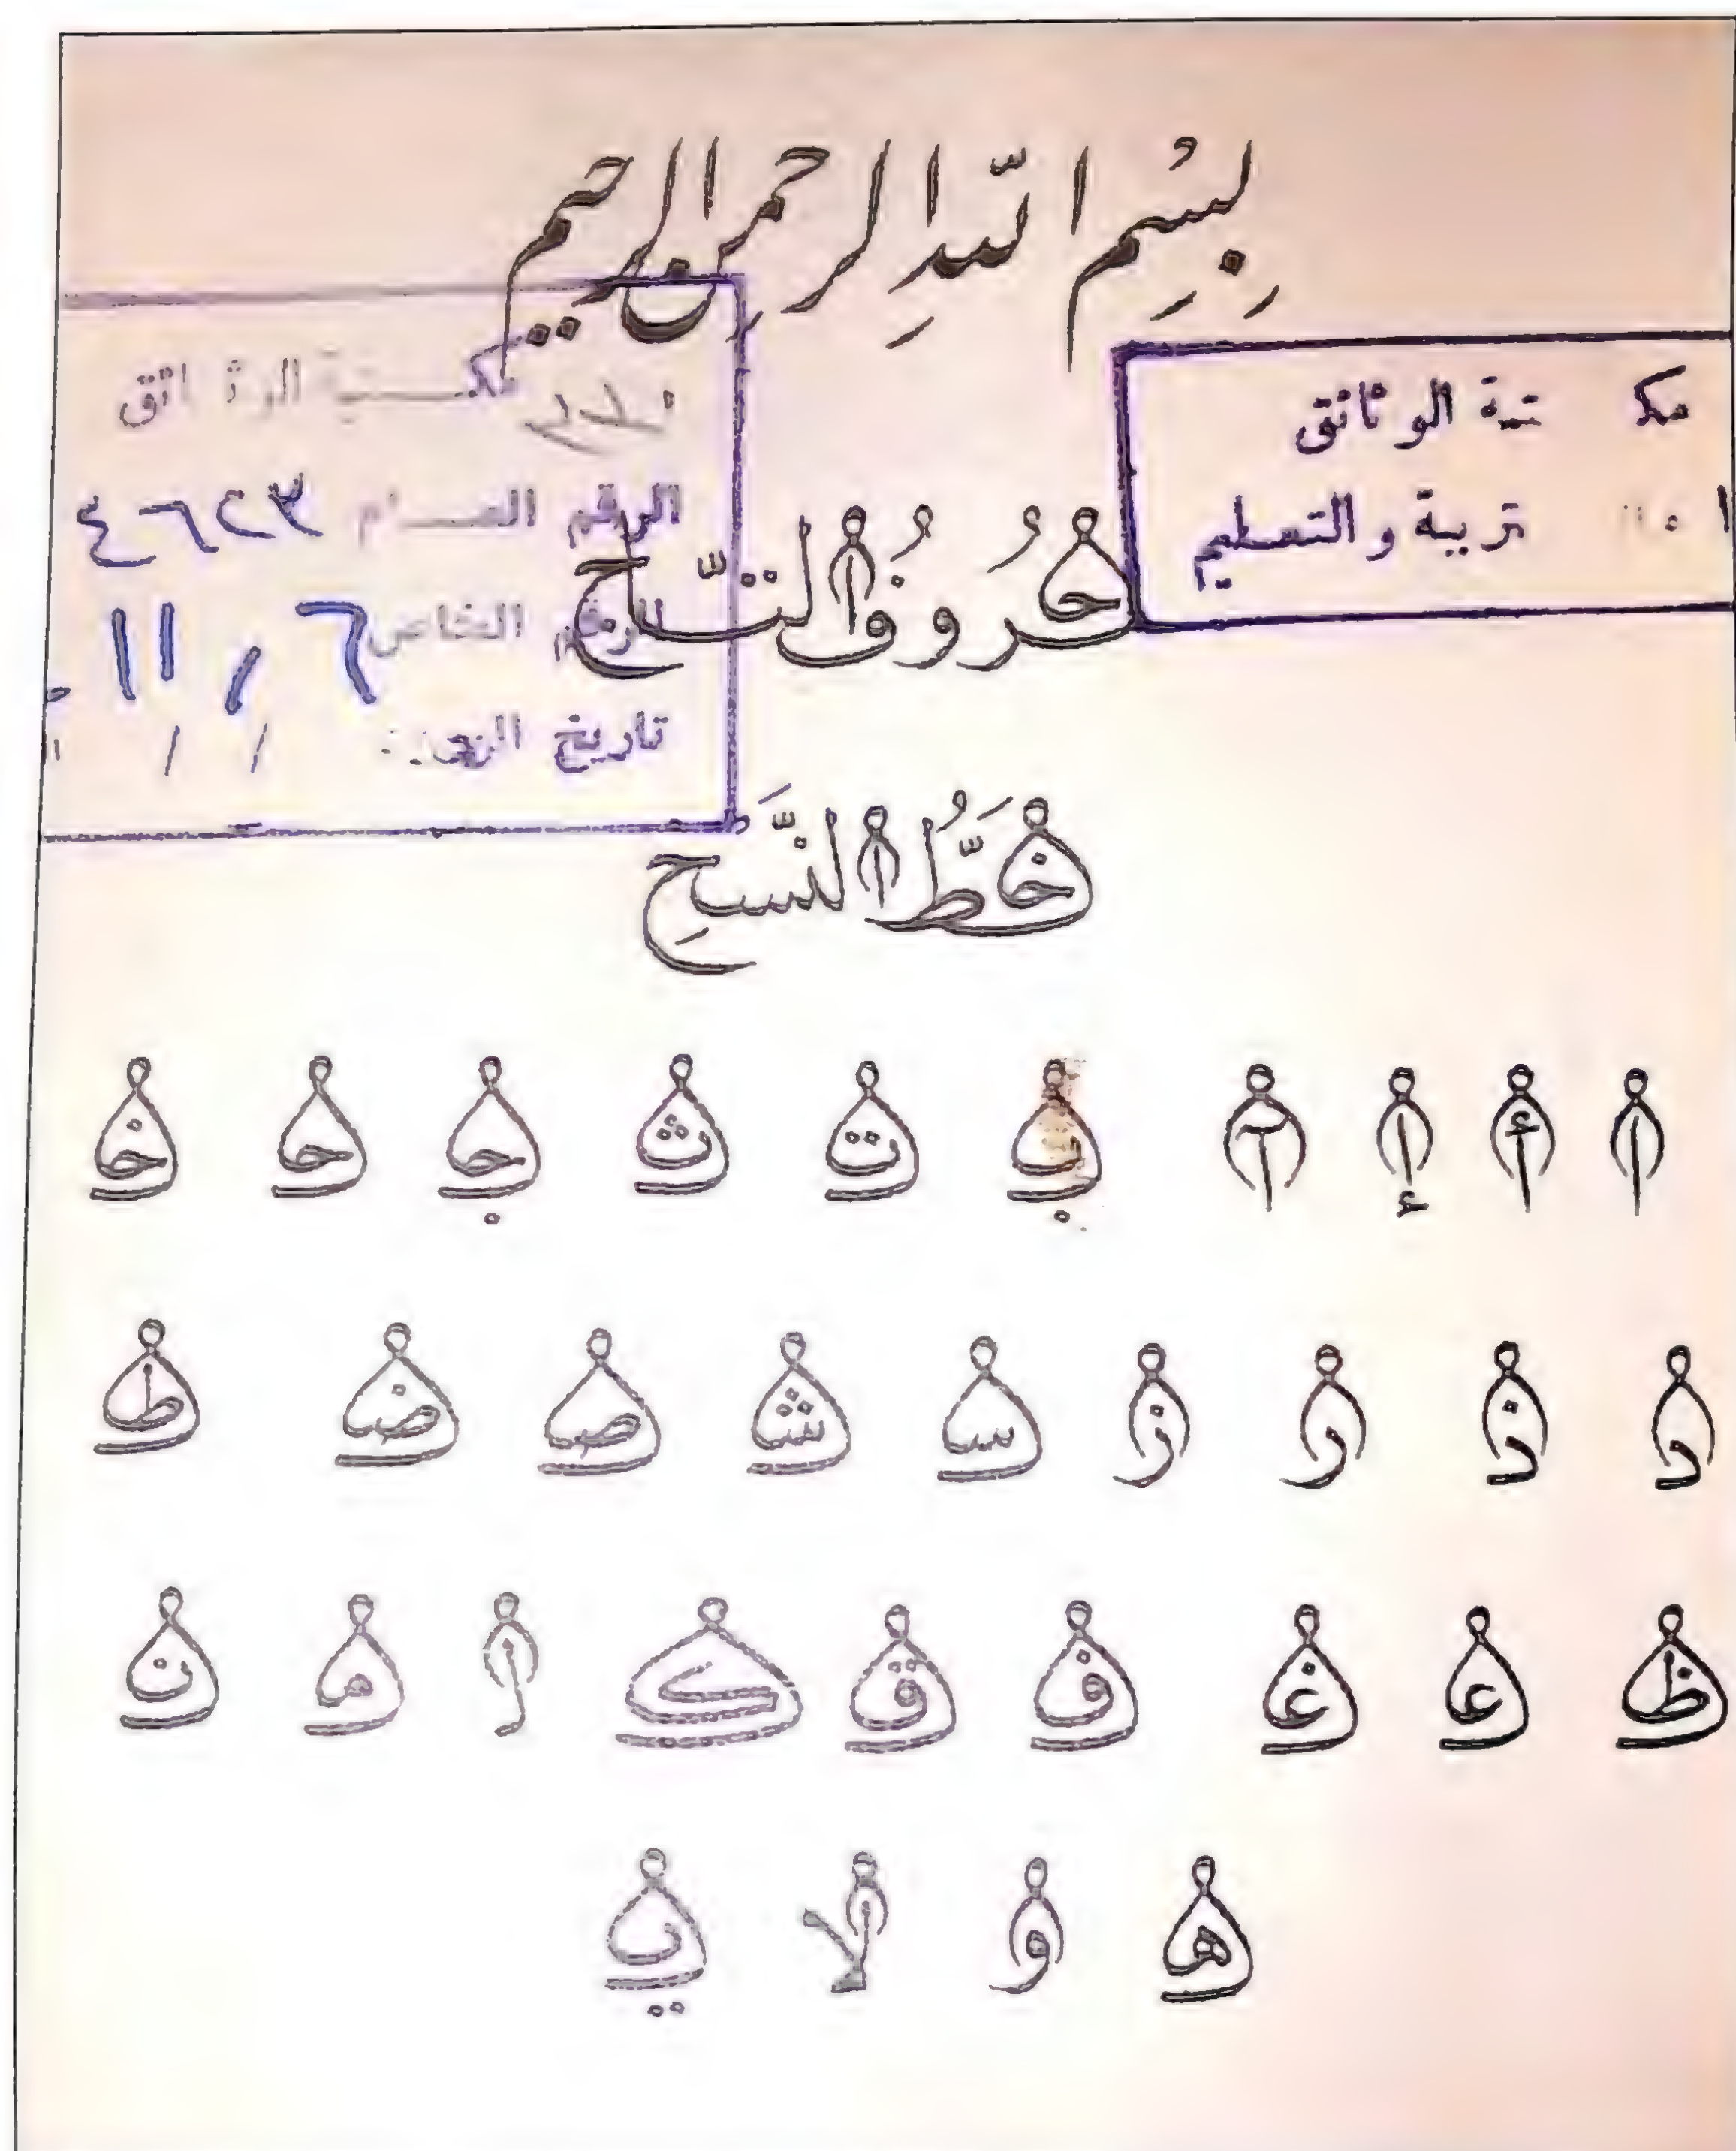 بِسْمِ اللهِ الرحمنِ الرحيم
مكتبة الوثائق
تربية والتعليم
مكتبة الوثائق
الرقم العام ٣٢٦٤
الرقم الخاص ٦ / ١١
تاريخ
حُروفُ التّاج
خَطُّ النَّسخِ
ا أ إ آ ب ت ث ج ح خ
د ذ ر ز س ش ص ض ط
ظ ع غ ف ق ك ل م ن
ه و لا ي